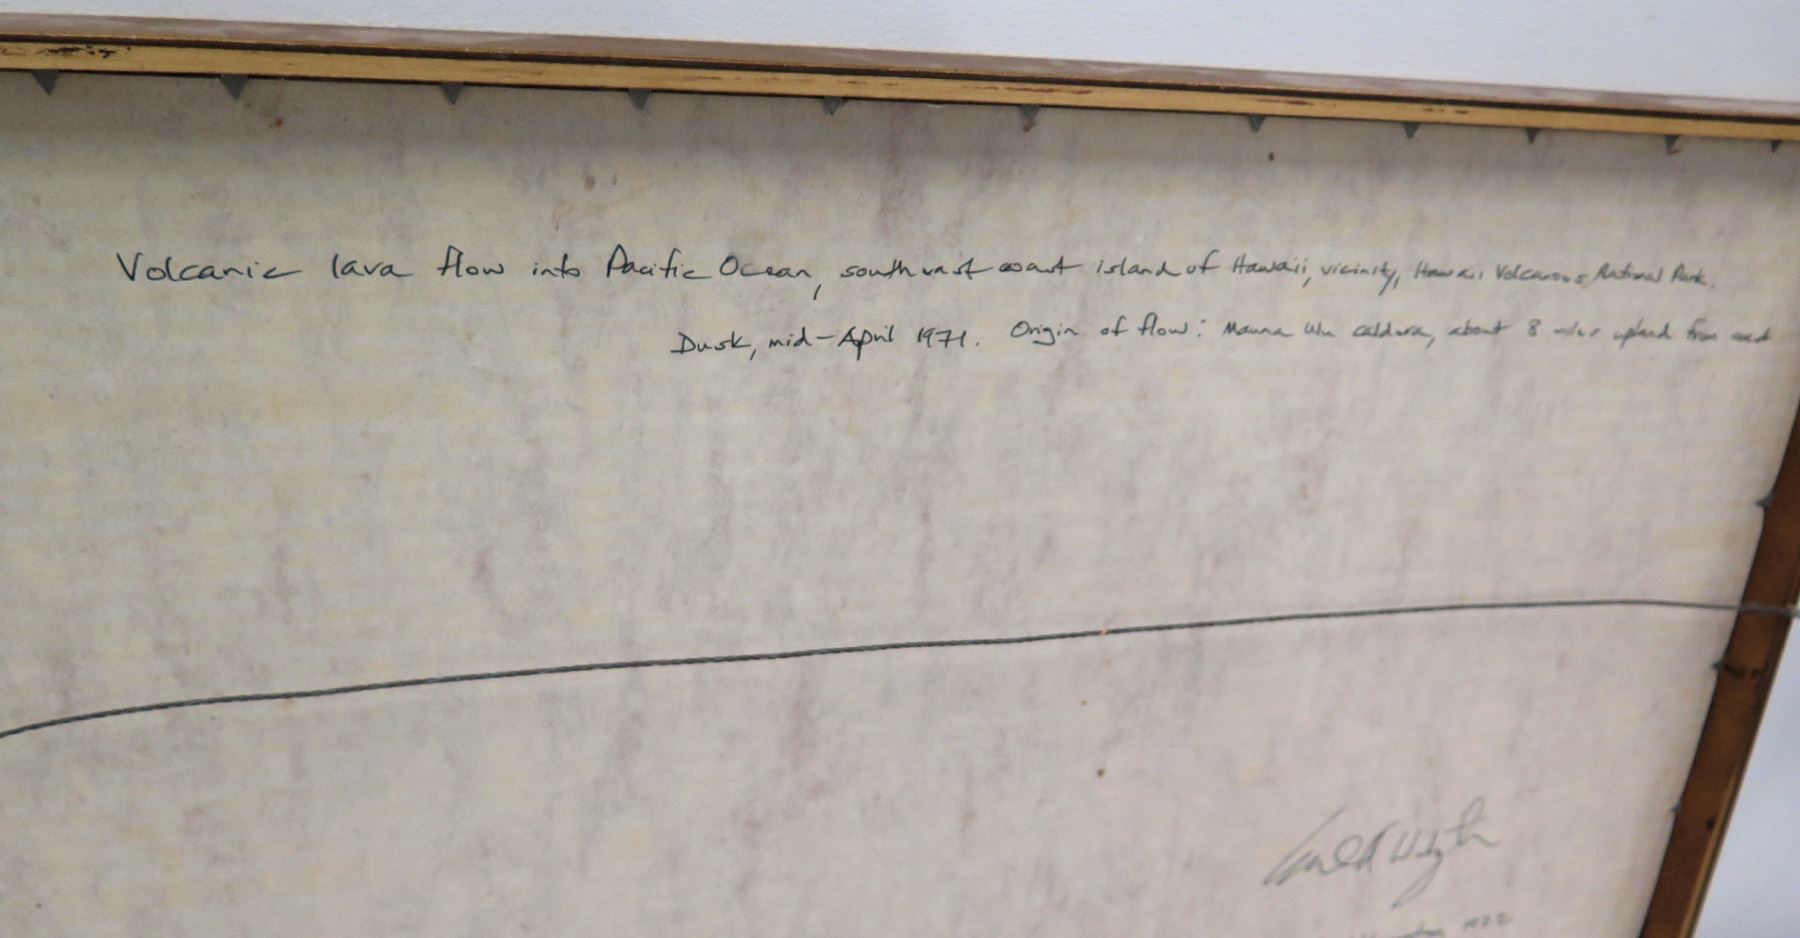 Volcanic lava flow into Pacific Ocean, southeast coast island of Hawaii, vicinity, Hawaii Volcanoes National Park.
Dusk, mid-April 1971. Origin of flow: Mauna Ulu caldera, about 8 miles upland from